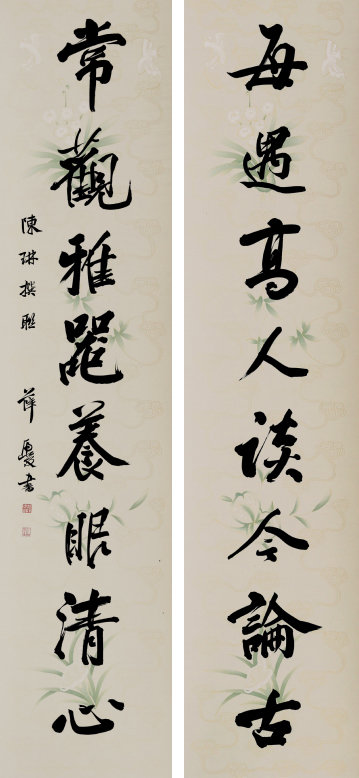 每遇高人談今論古
常觀雅器養眼清心
陳琳撰聯 薛夔書